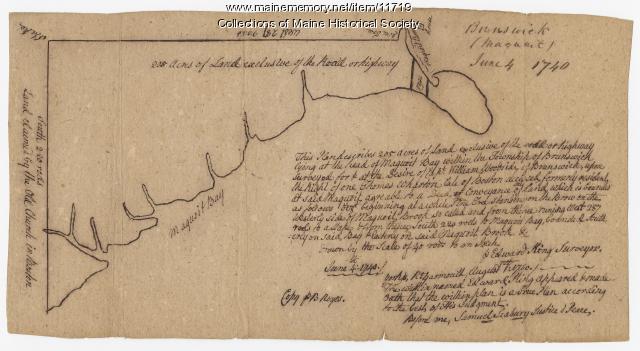 www.mainememory.net/item/11719
Collections of Maine Historical Society
Brunswick
(Maquoit)
June 4 1740
205 Acres of Land exclusive of the Road or highway
South 220 rods
Land claimed by the Old Church in Boston
Maquoit Bay
This Plan describes 205 acres of Land exclusive of the road or highway
lying at the head of Maquoit Bay within the Township of Brunswick
Surveyed for & at the Desire of William Woodside of Brunswick, upon
the Right of one Thomas Wharton late of Boston deceased, formerly resident
at said Maquoit, agreable to a Deed of Conveyance of Land which is bounded
as follows beginning at a white Oak Tree standing on the Brow on the
westerly side of Maquoit Brook so called and from thence runing West 28°
rods to a Stake & from thence South 220 rods to Maquoit Bay, bounded South
erly on said Bay & Easterly on said Maquoit Brook &c
drawn by the Scale of 40 rods to an Inch
June 4 1740
⅌ Edward King Surveyor.
York ss. Yarmouth August 1740.
The within named Edward King appeared & made
Oath that the within plan is a True Plan according
to the best of His Judgment.
Before me, Samuel Seabury Justice Peace,
Copy